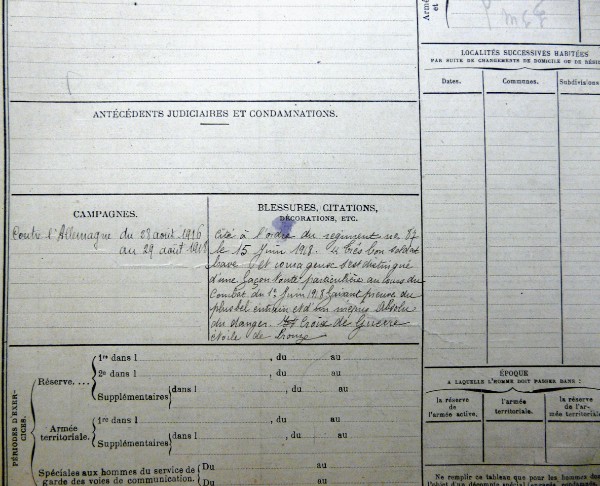 Armée
et
LOCALITÉS SUCCESSIVES HABITÉES
PAR SUITE DE CHANGEMENTS DE DOMICILE OU DE RÉSI
Dates.
Communes.
Subdivisions
ANTÉCÉDENTS JUDICIAIRES ET CONDAMNATIONS.
CAMPAGNES.
Contre l'Allemagne du 28 août 1916
au 29 août 1918
BLESSURES, CITATIONS,
DÉCORATIONS, ETC.
Cité à l'ordre du regiment no 87
le 15 Juin 1918. "Trés bon soldat
brave et courageux s'est distingué
d'une façon toute particulière au cours du
Combat du 1er Juin 1918 faisant preuve du
plus bel entrain et d'un mépris absolu
du danger. Croix de Guerre
étoile de bronze
PÉRIODES D'EXER-
CICES.
Réserve....
1re dans l , du au
2e dans l , du au
Supplémentaires dans l , du au
Armée
territoriale.
1re dans l , du au
Supplémentaires dans l , du au
Spéciales aux hommes du service de
garde des voies de communication.
Du au
Du au
ÉPOQUE
A LAQUELLE L'HOMME DOIT PASSER DANS :
la réserve
de
l'armée active.
l'armée
territoriale.
la réserve
de l'ar-
mée territoriale.
Ne remplir ce tableau que pour les hommes